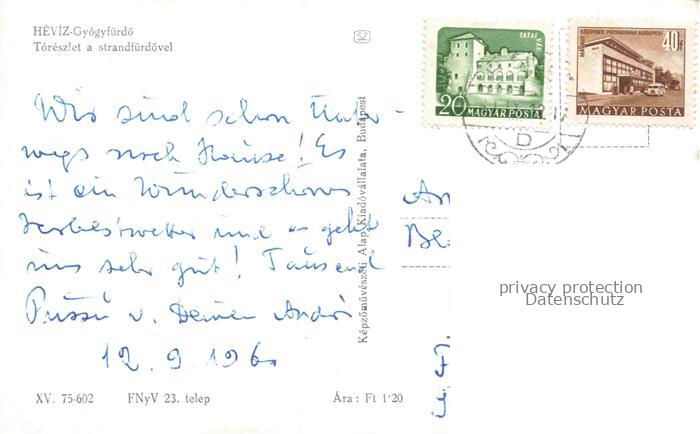 HÉVÍZ-Gyógyfürdő
Tórészlet a strandfürdővel
SZ
TATAI VÁR
20f
MAGYAR POSTA
KÖZPONTI PÁLYAUDVAR BUDAPEST
40f
MAGYAR POSTA
D
Wir sind schon Unter-
wegs nach Hause! Es
ist ein Wunderschönes
Herbstwetter und es geht
uns sehr gut! Tausend
Pussi v. Deinen
12.9.196
An
Képzőművészeti Alap Kiadóvállalata, Budapest
privacy protection
Datenschutz
XV. 75-602 FNyV 23. telep Ára: Ft 1·20